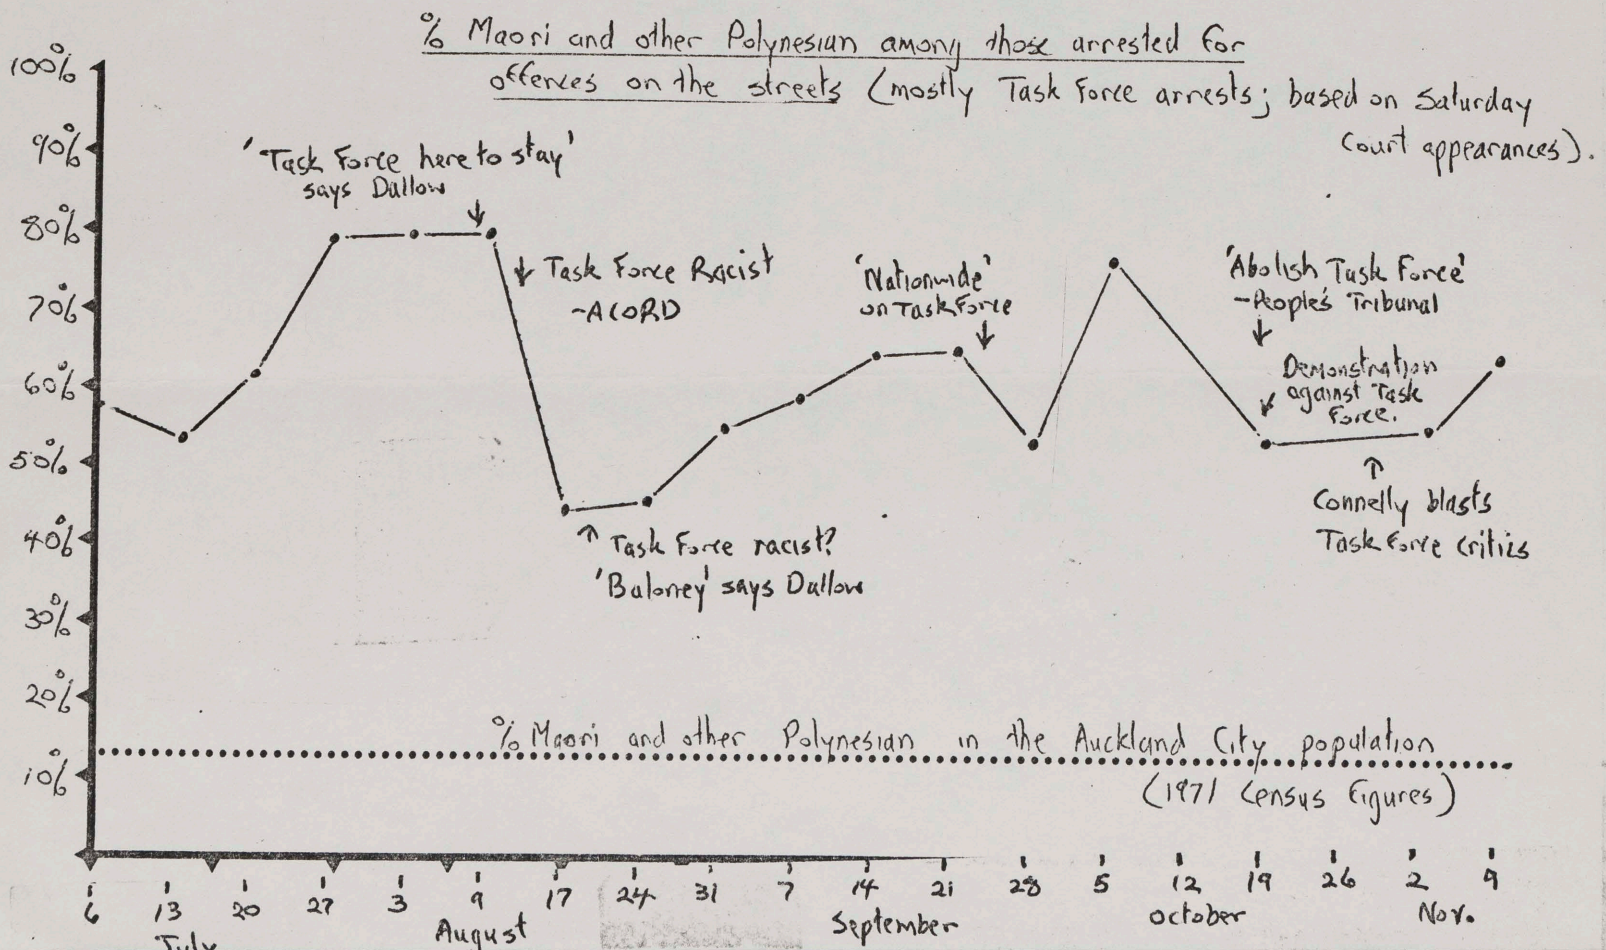 % Maori and other Polynesian among those arrested for
offences on the streets (mostly Task Force arrests; based on Saturday
Court appearances).
100%
90%
80%
70%
60%
50%
40%
30%
20%
10%
'Task Force here to stay'
says Dallow
↓
↓ Task Force Racist
-ACORD
'Nationwide'
on Task Force
↓
'Abolish Task Force'
-People's Tribunal
↓
Demonstration
against Task
Force.
↑ Task Force racist?
'Baloney' says Dallow
↑
Connelly blasts
Task Force critics
% Maori and other Polynesian in the Auckland City population
(1971 Census Figures)
6 13 20 27 3 9 17 24 31 7 14 21 28 5 12 19 26 2 9
July August September October Nov.